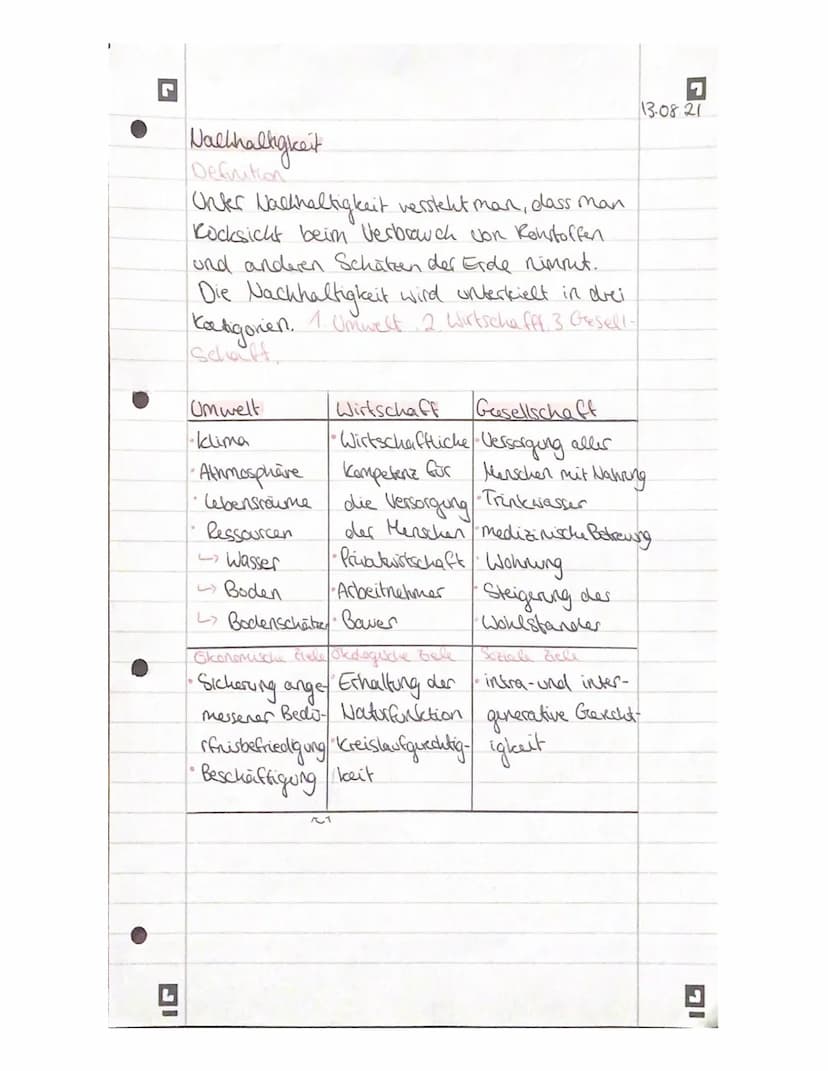 13.08.21
Nachhaltigkeit
Definition
Unter Nachhaltigkeit versteht man, dass man
Rücksicht beim Verbrauch von Rohstoffen
und anderen Schätzen der Erde nimmt.
Die Nachhaltigkeit wird unterteilt in drei
Kategorien. 1 Umwelt 2 Wirtschaft 3 Gesell-
schaft.
Umwelt
• Klima
• Athmosphäre
• Lebensräume
• Ressourcen
↳ Wasser
↳ Boden
↳ Bodenschätze
Wirtschaft
• Wirtschaftliche
Kompetenz für
die Versorgung
der Menschen
• Privatwirtschaft
• Arbeitnehmer
• Bauer
Gesellschaft
• Versorgung aller
Menschen mit Nahrung
• Trinkwasser
• medizinische Betreuung
• Wohnung
• Steigerung des
• Wohlstandes
Ökonomische Ziele
• Sicherung ange-
messener Bedü-
rfnisbefriedigung
• Beschäftigung
Ökologische Ziele
• Erhaltung der
Naturfunktion
• Kreislaufgerechtig-
keit
Soziale Ziele
• intra- und inter-
generative Gerecht-
igkeit